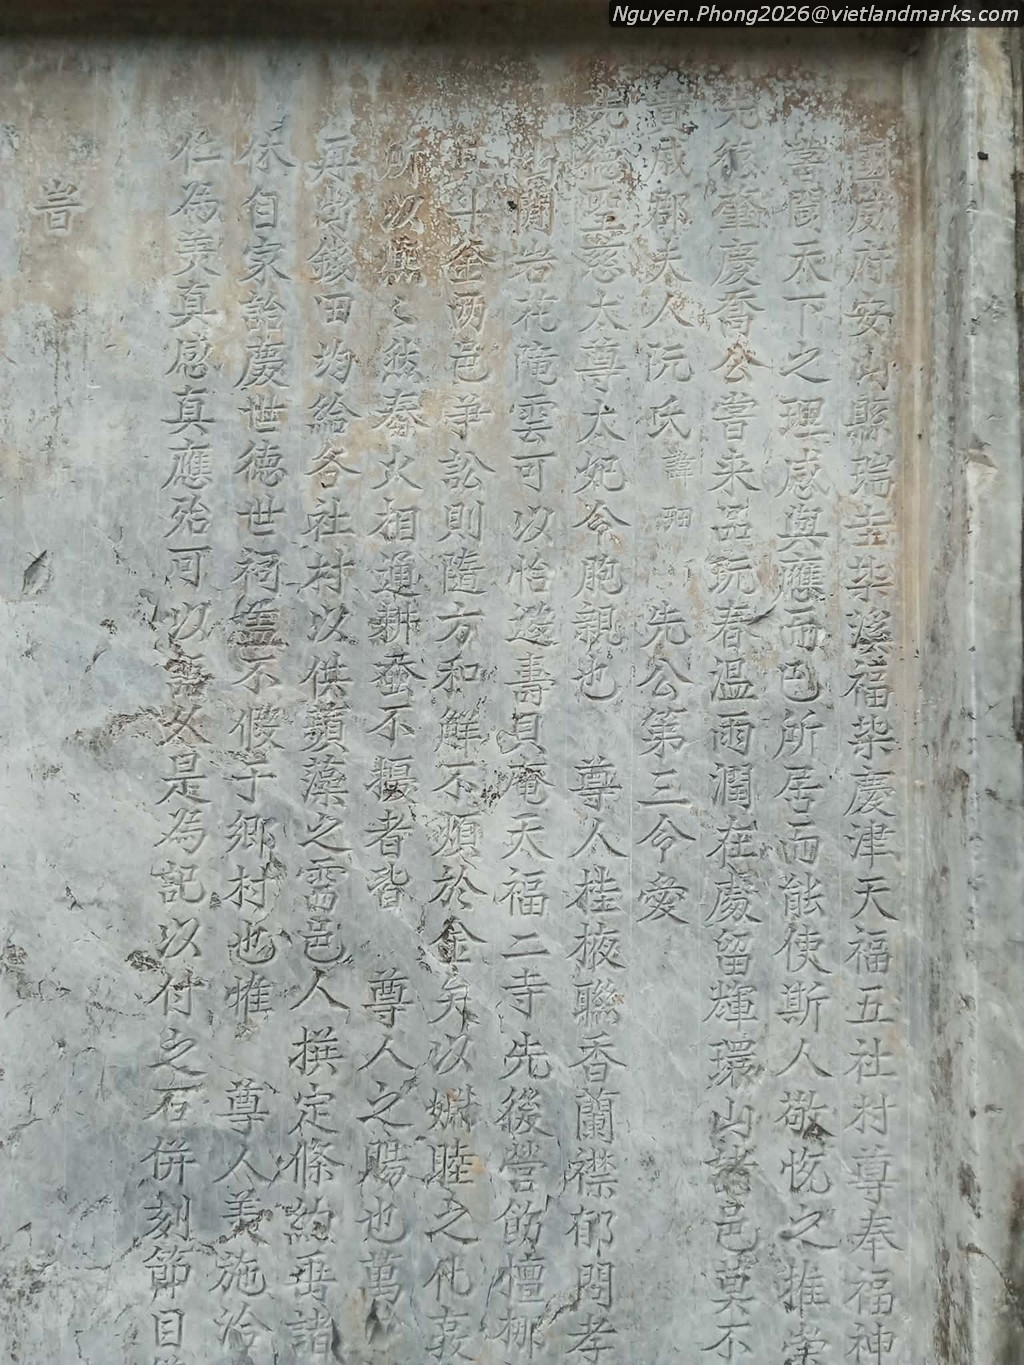 Nguyen.Phong2026@vietlandmarks.com
國威府安山縣瑞圭柴溪福柴慶津天福五社村尊奉福神
嘗聞天下之理感與應而已所居而能使斯人敬悦之推崇
先後奎慶喬公嘗来品玩春温雨潤在處留輝環山諸邑莫不
郡夫人阮氏諱 先公第三令愛
聖慈太尊太妃令胞親也 尊人桂掖聯香蘭襟郁問孝
岩花庵雲可以怡遊壽貝庵天福二寺先後營飭檀梛
斗金两邑爭訟則隨方和解不煩於金矢以婣睦之化
所以熈〻然舂火相通耕蚕不擾者皆 尊人之賜也萬
再出錢田均給各社村以供蘋藻之需邑人撰定條約垂諸
依自家詒慶世德世祠盖不假于鄉村也惟 尊人美施洽
仁為美真感真應殆可以 久是為記以付之石併刻節目
旹